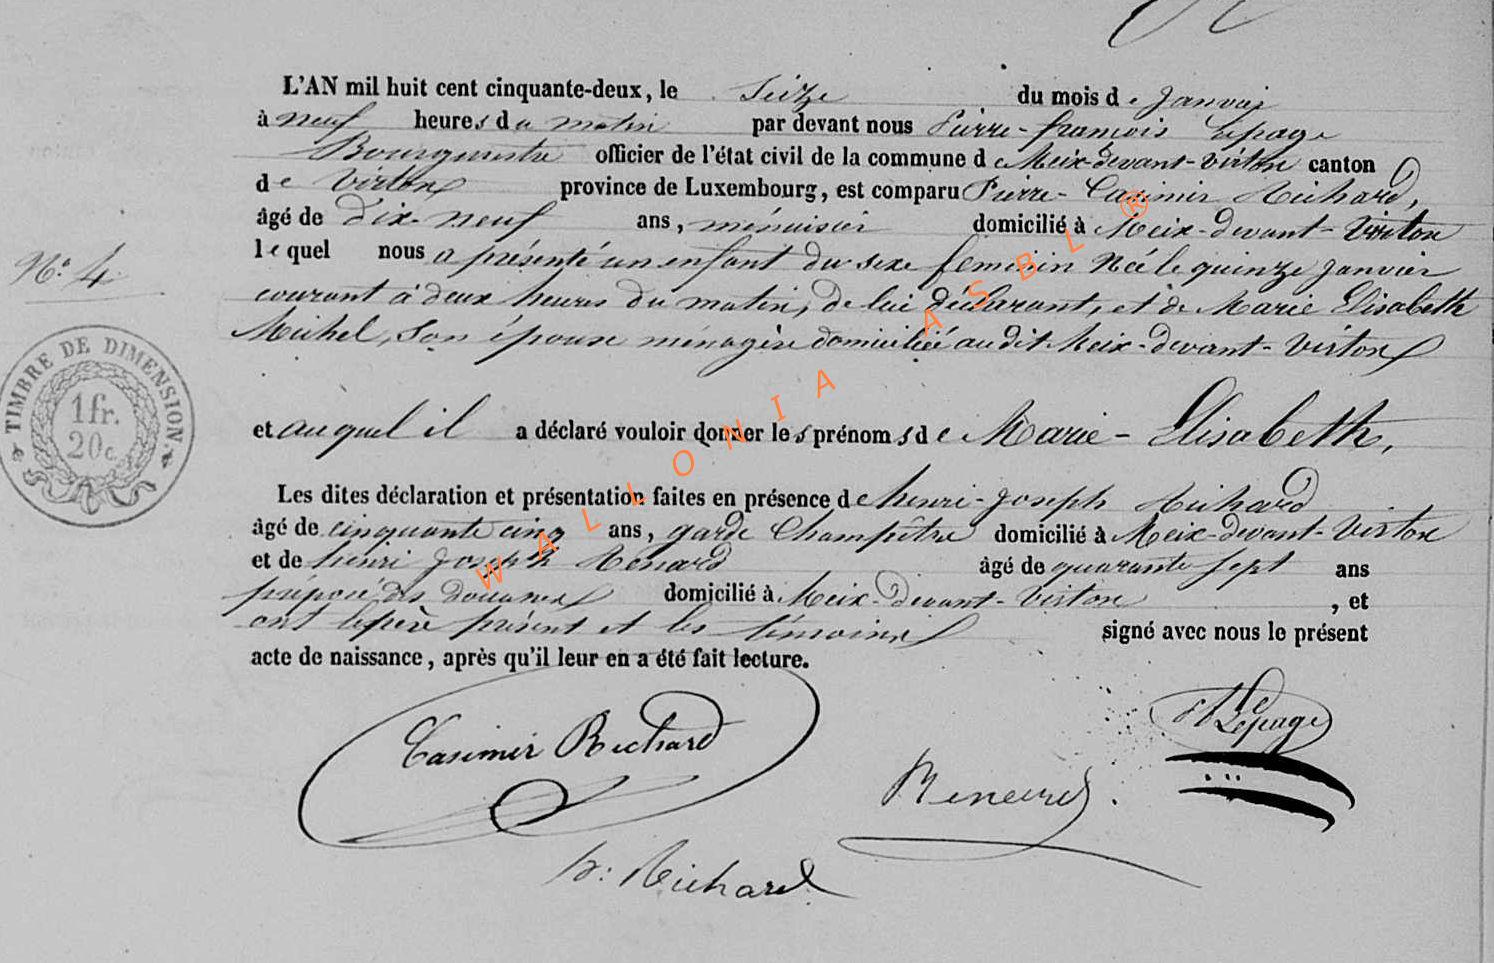 L'AN mil huit cent cinquante-deux, le Seize du mois de Janvier
à neuf heures du matin par devant nous Pierre-françois Lepage
Bourguestre officier de l'état civil de la commune de Meix-devant-Virton canton
de Virton province de Luxembourg, est comparu Pierre-Casimir Richard,
âgé de dix-neuf ans, ménuisier domicilié à Meix-devant-Virton
lequel nous a présenté un enfant du sexe feminin Née le quinze Janvier
N.° 4
courant à deux heures du matin, de lui déclarant, et de Marie Elisabeth
Michel, Son épouse ménagère domiciliée audit Meix-devant-Virton
TIMBRE DE DIMENSION.
1fr.
20c.
et auquel il a déclaré vouloir donner les prénoms de Marie-Elisabeth,
Les dites déclaration et présentation faites en présence de henri-Joseph Richard
âgé de cinquante cinq ans, garde Champêtre domicilié à Meix-devant-Virton
et de henri Joseph Renard âgé de quarante sept ans
préposé des douanes domicilié à Meix-devant-Virton , et
ont le père présent et les témoins signé avec nous le présent
acte de naissance, après qu'il leur en a été fait lecture.
Casimir Richard
Lepage
Renard.
h: Richard
WALLONIA ASBL ®